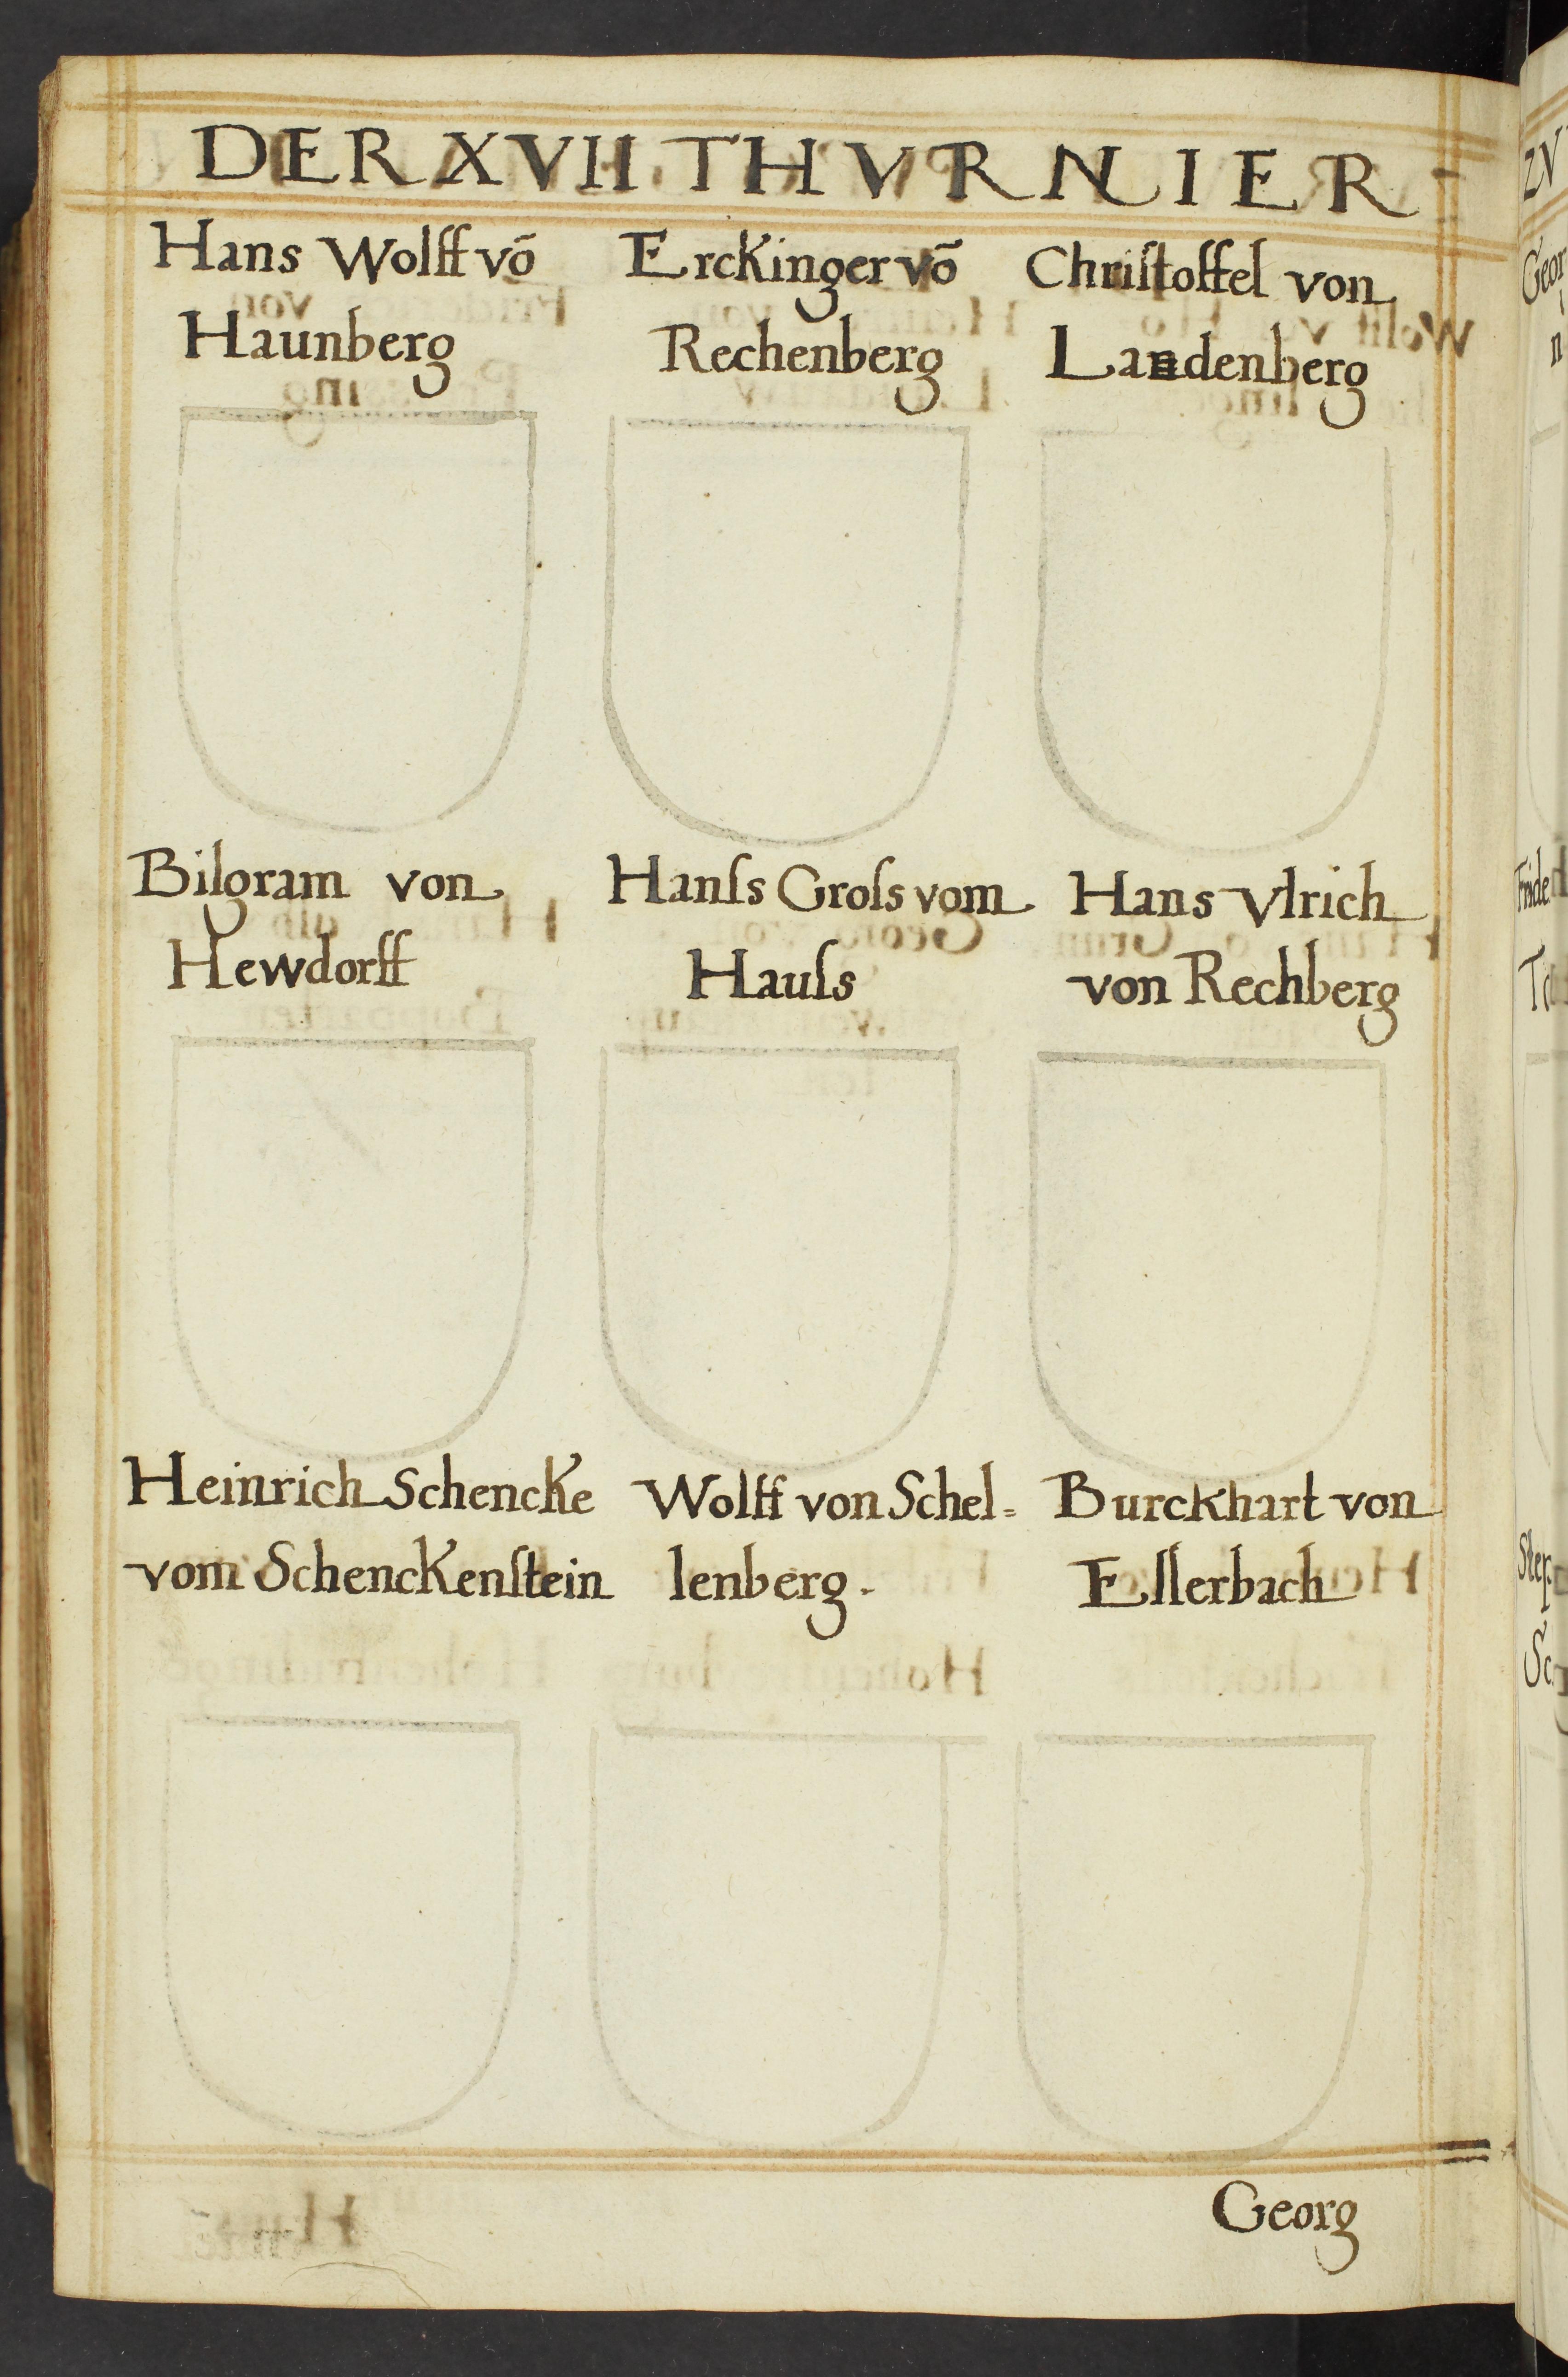 DER XVII THVRNIER
Hans Wolff võ
Haunberg
Erckinger võ
Rechenberg
Chriſtoffel von
Landenberg
Bilgram von
Hewdorff
Hanſs Groſs vom
Hauſs
Hans Vlrich
von Rechberg
Heinrich Schencke
vom Schenckenſtein
Wolff von Schel=
lenberg.
Burckhart von
Ellerbach
Georg